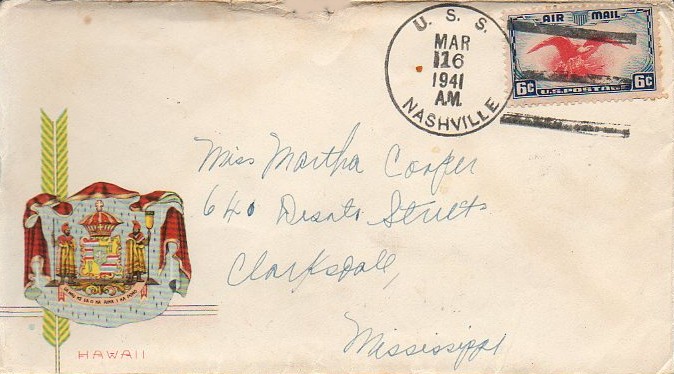 U. S. S.
MAR
16
1941
A.M.
NASHVILLE
AIR MAIL
6¢ U.S. POSTAGE 6¢
Miss Martha Cooper
640 Desoto Street
Clarksdale,
Mississippi
UA MAU KE EA O KA AINA I KA PONO
HAWAII